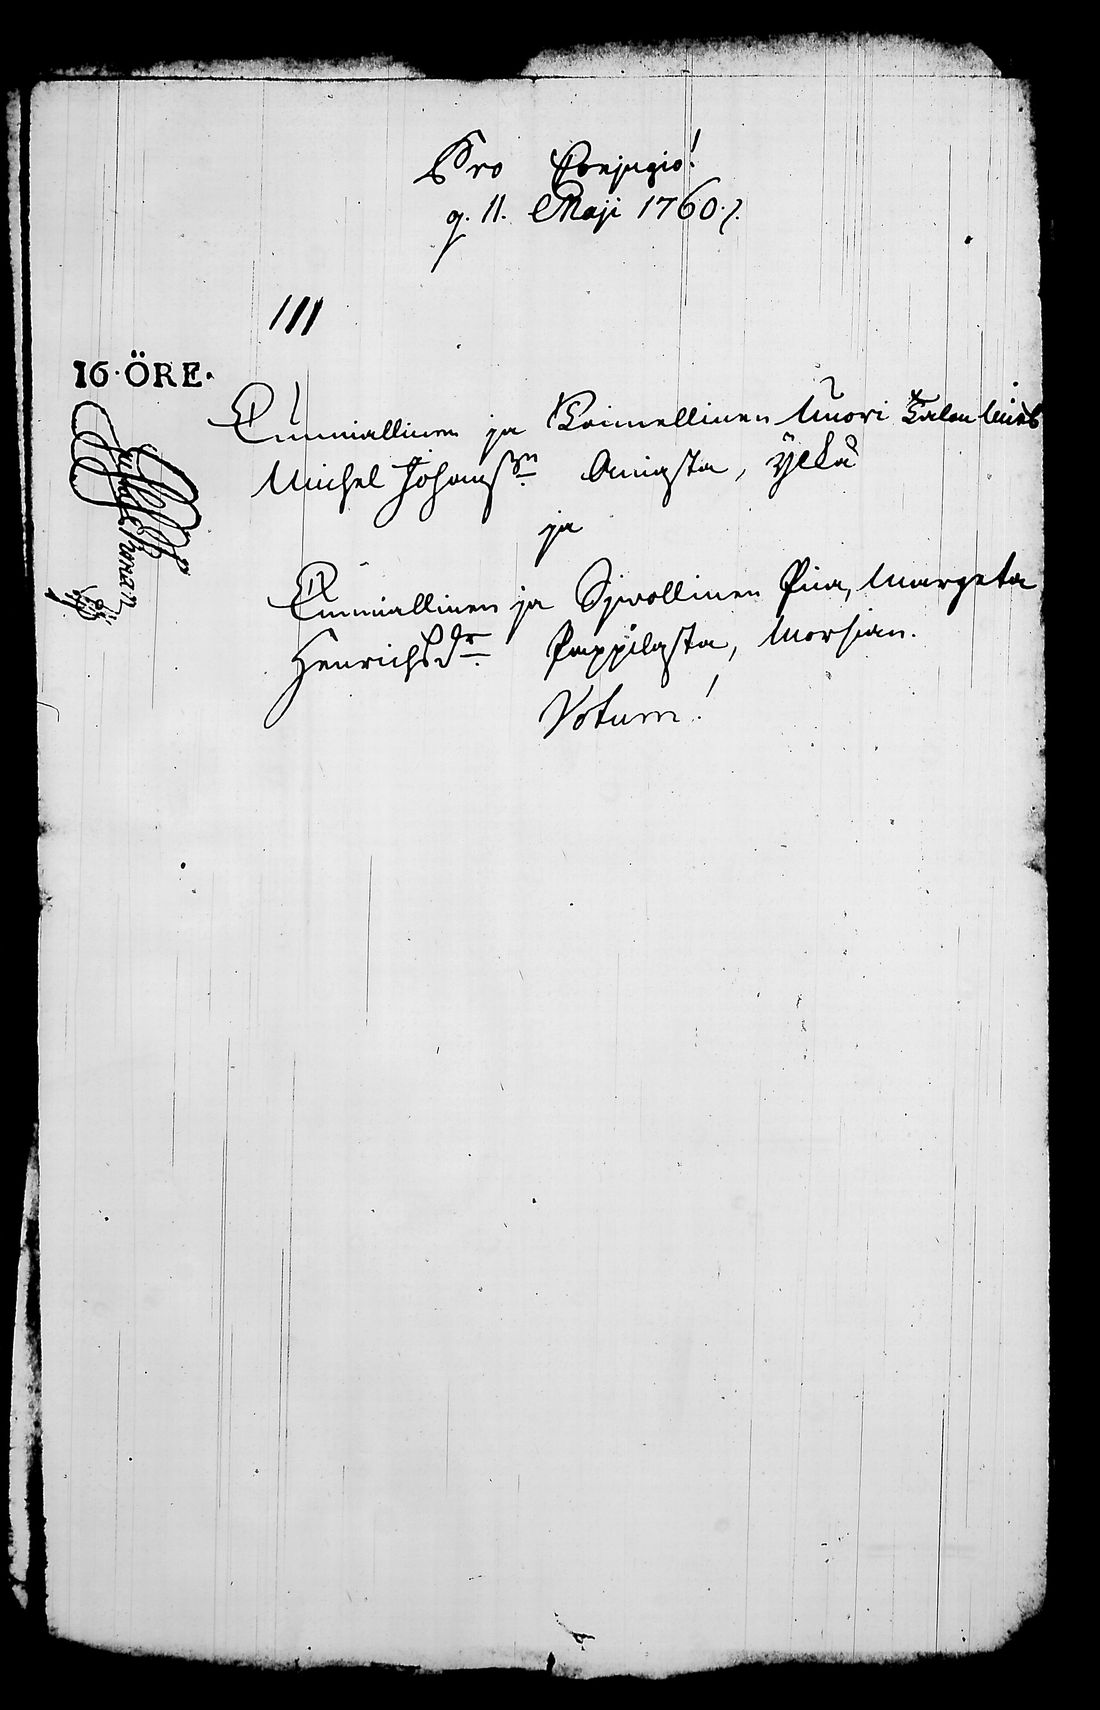 Pro Conjugio!
g. 11. Maji 1760.
111
16·ÖRE.
Cunniallinen ja Toimellinen Nuori Talon Mies
Michel Johans Sn Aniasta, Ylkä
ja
Cunniallinen ja Sijwollinen Pica, Margeta
Henrichs dr Pappilasta, Morsian.
Votum!